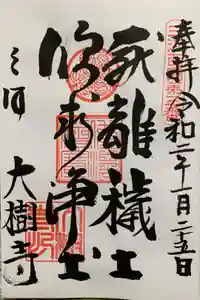 奉拝 令和二年十一月二十五日
厭離穢土
欣求浄土
三河
大樹寺